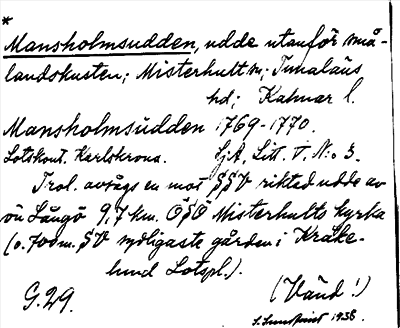 *
Mansholmsudden, udde utanför små-
landskusten; Misterhult sn; Tunaläns
hd; Kalmar l.
Mansholmsudden 1769-1770.
Lotskont. Karlskrona. SjA, Litt. T. N:o 3.
Trol. avsågs en mot SSV riktad udde av
ön Långö 9,7 km. ÖSÖ Misterhults kyrka
(c. 700 m. SV sydligaste gården i Kråke-
lund Lotspl.).
G. 29. (Vänd!)
S. Sundqvist 1938.